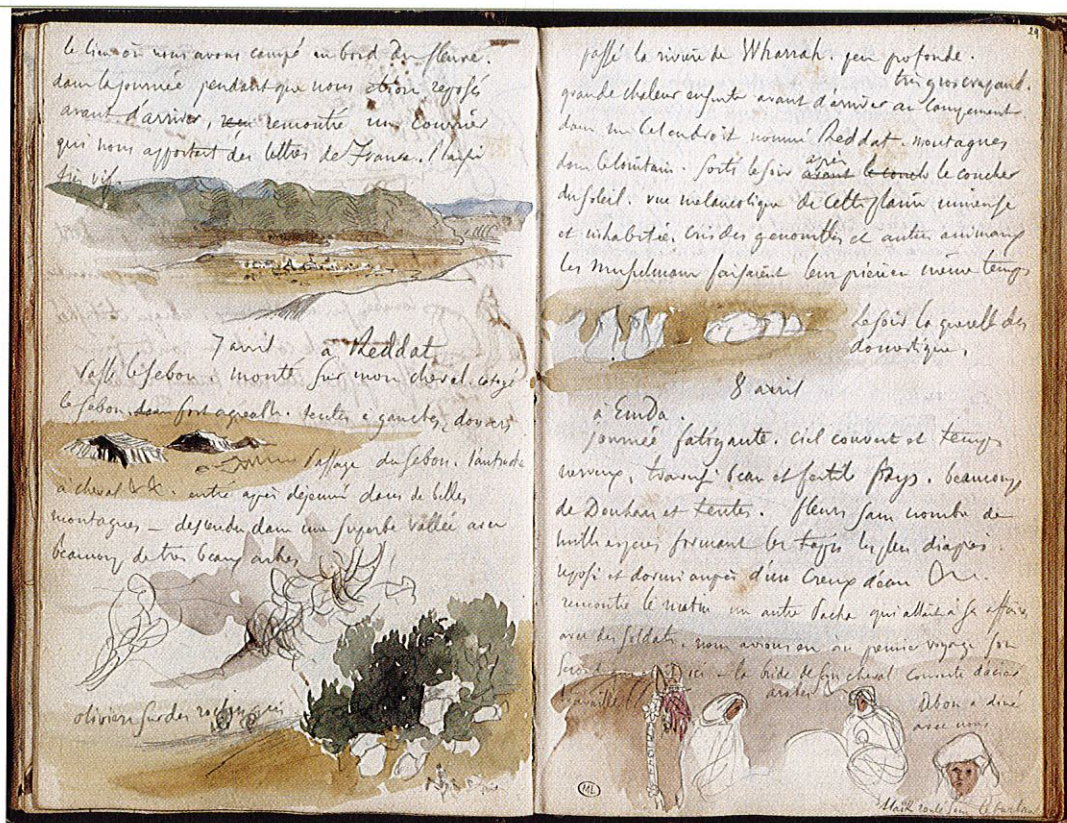 le lieu où nous avons campé au bord du fleuve.
dans la journée pendant que nous étions reposés
avant d'arriver, remontré un courrier
qui nous apportait des lettres de France. Plaisir
très vif.
7 avril à Reddat
Passé le Sebou monté sur mon cheval. cotoyé
le Sebou. fort agréable. tentes à gauche, douars
Passage du Sebou. l'autruche
à cheval &&. entré après déjeuner dans de belles
montagnes – descendu dans une superbe vallée avec
beaucoup de très beaux arbres
oliviers sur des rochers gris
29
passé la rivière de Wharrah. peu profonde.
très gros crapaud.
grande chaleur ensuite avant d'arriver au campement
dans un bel endroit nommé Reddat. montagnes
dans le lointain. sorti le soir après avant le couch le coucher
du soleil. vue mélancolique de cette plaine immense
et inhabitée. cris des grenouilles et autres animaux
les musulmans faisaient leur prière en même temps
Le soir la querelle des
domestiques.
8 avril
à Emda.
journée fatigante. ciel couvert et temps
nerveux. beau et fertile pays. beaucoup
de Douhars et tentes. fleurs sans nombre de
mille espèces formant les tapis les plus diaprés.
reposé et dormi auprès d'un creux d'eau
rencontré le matin un autre Pacha qui allait à ses affaires
avec des soldats. nous avions eu au premier voyage son
la bride de son cheval couverte d'acier
travaillé
arabes
Abou a diné
avec nous
ML
roulé sous le turban